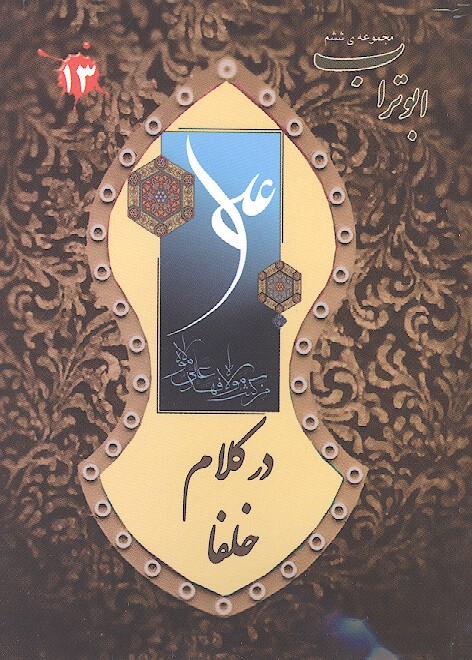 مجموعه‌ی ششم
ابوتراب
۱۳
علی
من کنت مولاه فهذا علی مولاه
در کلام
خلفا